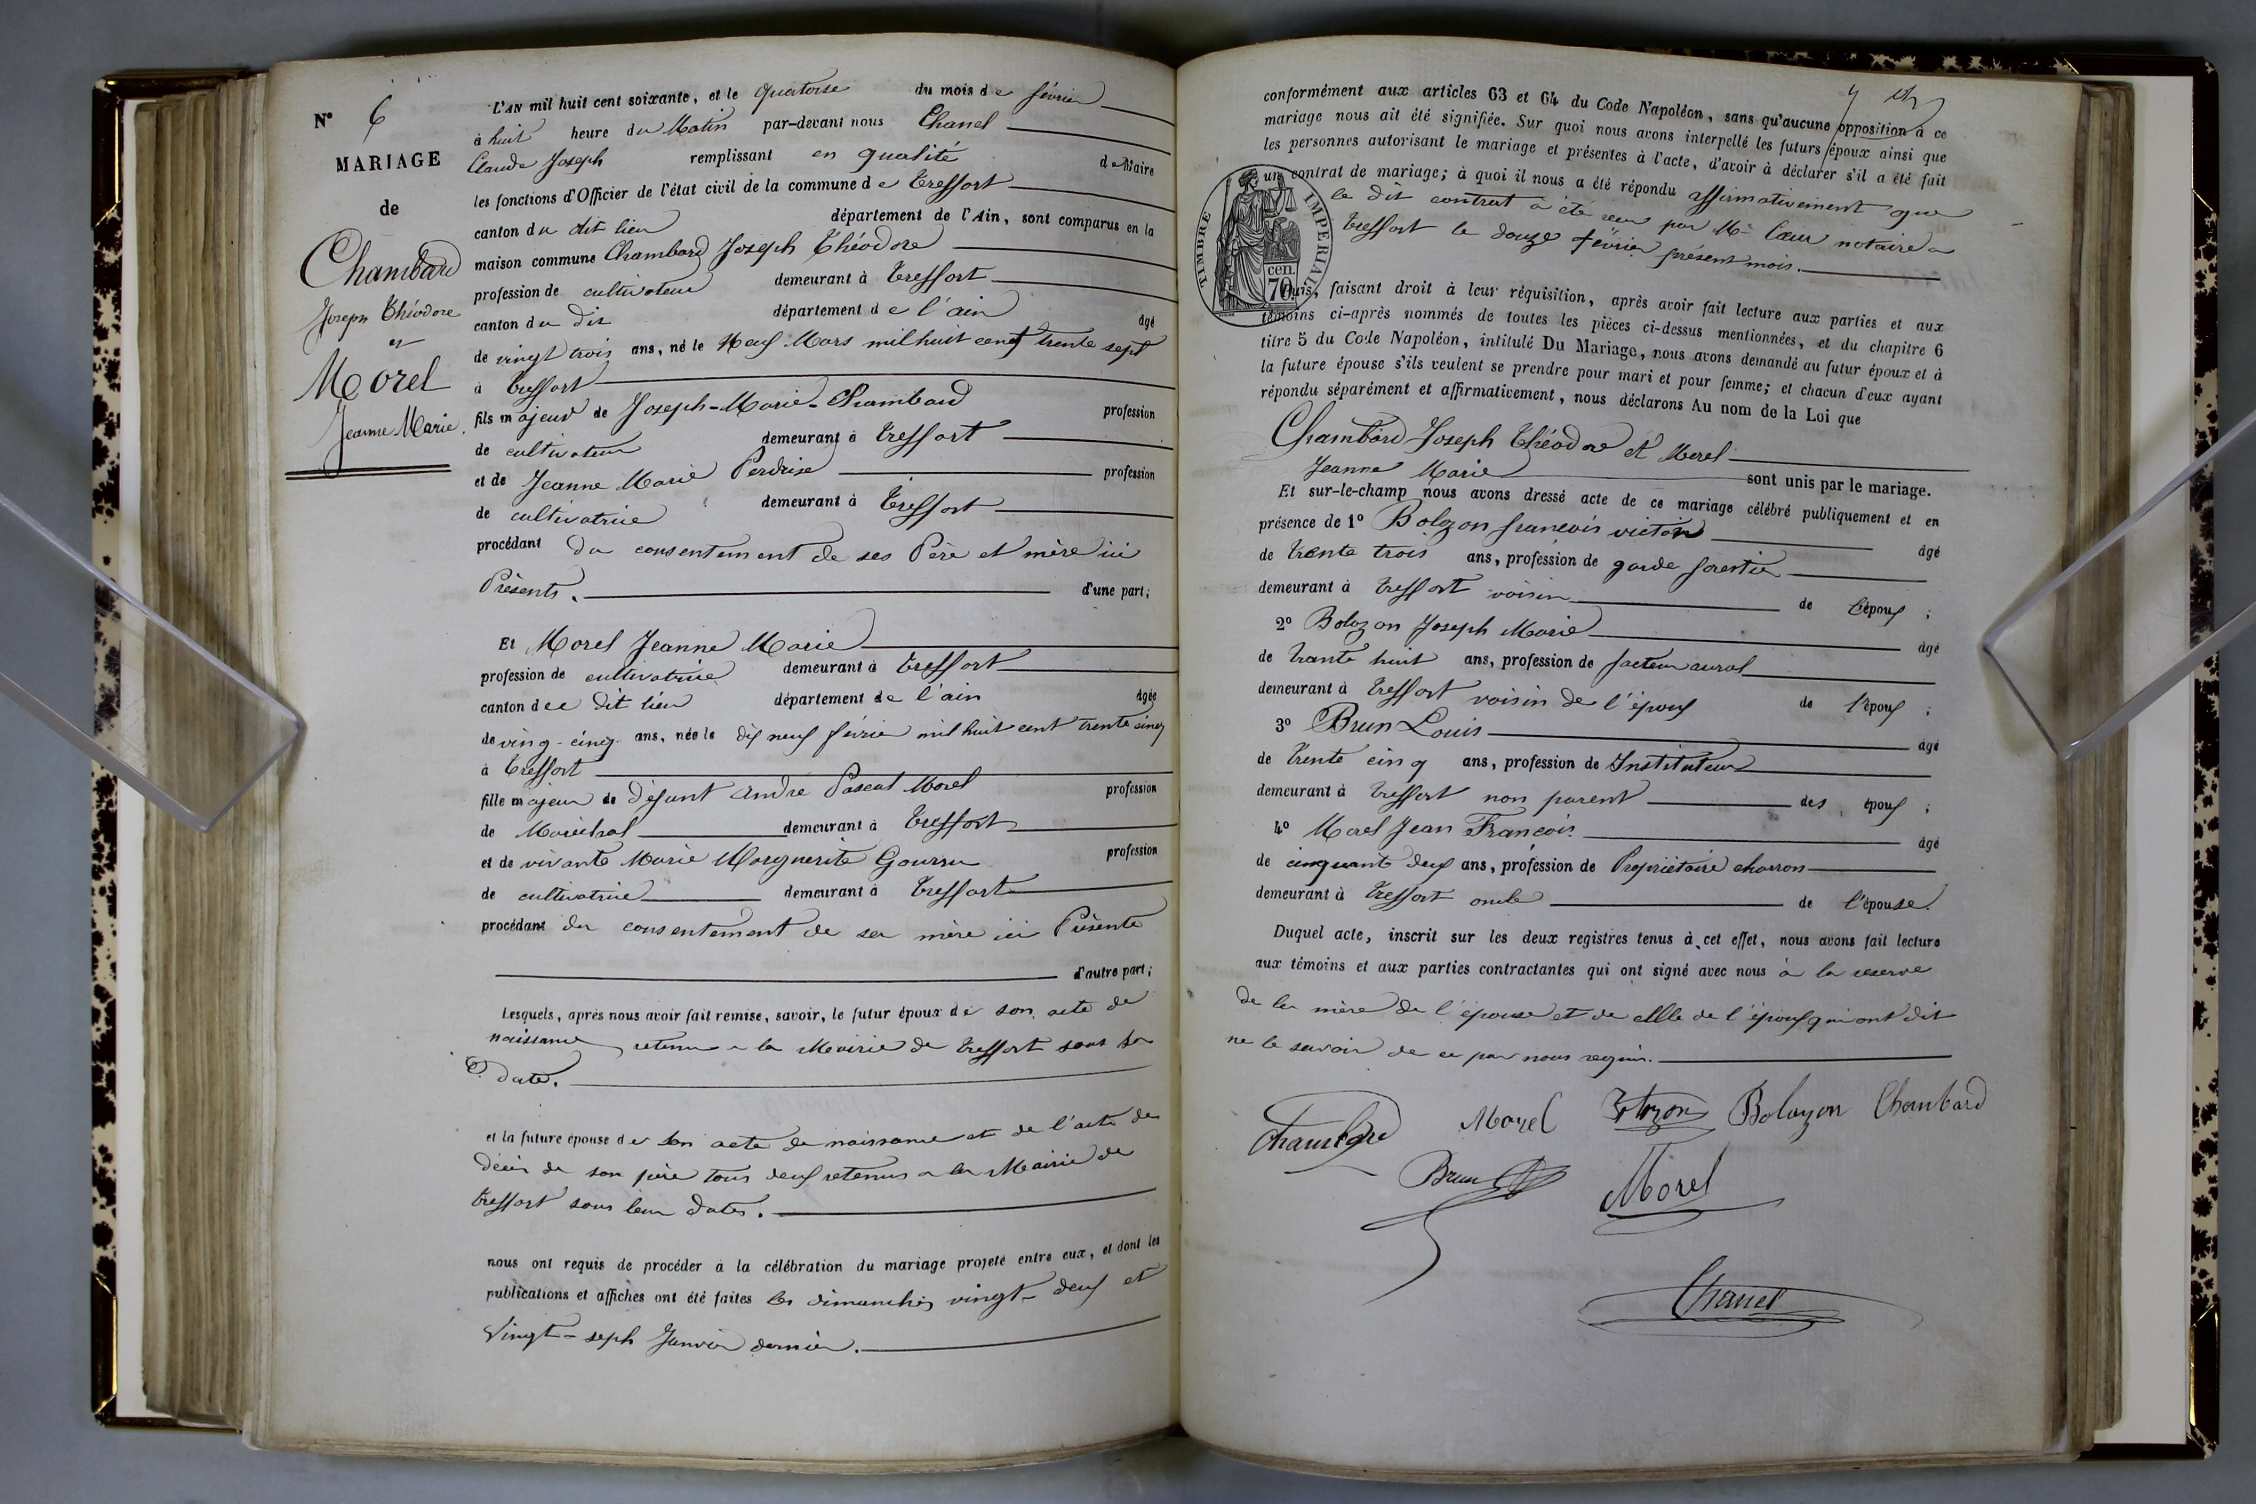 N° 6
MARIAGE
de
Chambard
Joseph Théodore
et
Morel
Jeanne Marie.
L'AN mil huit cent soixante, et le quatorse du mois de février
à huit heure du Matin par-devant nous Chanel
Claude Joseph remplissant en qualité de Maire
les fonctions d'Officier de l'état civil de la commune de Treffort
canton du dit lieu département de l'Ain, sont comparus en la
maison commune Chambard Joseph Théodore
profession de cultivateur demeurant à Treffort
canton du dit département de l'ain âgé
de vingt trois ans, né le Neuf Mars mil huit cent trente sept
à Treffort
fils majeur de Joseph-Marie-Chambard profession
de cultivateur demeurant à Treffort
et de Jeanne Marie Perdrix profession
de cultivatrice demeurant à Treffort
procédant du consentement de ses Père et mère ici
Présents. d'une part;
Et Morel Jeanne Marie
profession de cultivatrice demeurant à Treffort
canton du dit lieu département de l'ain âgée
de ving-cinq ans, née le dix neuf février mil huit cent trente cinq
à Treffort
fille majeur de défunt andré Pascal Morel profession
de Maréchal demeurant à Treffort
et de vivante Marie Marguerite profession
de cultivatrice demeurant à Treffort
procédant du consentement de sa mère ici Présente
d'autre part;
Lesquels, après nous avoir fait remise, savoir, le futur époux de son acte de
naissance retenu a la Mairie de Treffort sous sa
date.
et la future épouse de son acte de naissance et de l'acte de
décès de son père tous deux retenus a la Mairie de
Treffort sous leur dates.
nous ont requis de procéder à la célébration du mariage projeté entre eux, et dont les
publications et affiches ont été faites les dimanches vingt-deux et
Vingt-neuf Janvier dernier.
conformément aux articles 63 et 64 du Code Napoléon, sans qu'aucune opposition à ce
mariage nous ait été signifiée. Sur quoi nous avons interpellé les futurs époux ainsi que
les personnes autorisant le mariage et présentes à l'acte, d'avoir à déclarer s'il a été fait
un contrat de mariage; à quoi il nous a été répondu affirmativement que
le dit contrat a été reçu par Me Cœur notaire a
Treffort le douze février présent mois.
TIMBRE IMPERIAL
70 cen.
Puis, faisant droit à leur réquisition, après avoir fait lecture aux parties et aux
témoins ci-après nommés de toutes les pièces ci-dessus mentionnées, et du chapitre 6
titre 5 du Code Napoléon, intitulé Du Mariage, nous avons demandé au futur époux et à
la future épouse s'ils veulent se prendre pour mari et pour femme; et chacun d'eux ayant
répondu séparément et affirmativement, nous déclarons Au nom de la Loi que
Chambard Joseph Théodore et Morel
Jeanne Marie sont unis par le mariage.
Et sur-le-champ nous avons dressé acte de ce mariage célébré publiquement et en
présence de 1° Bolozon françois victor âgé
de trente trois ans, profession de garde forestier
demeurant à Treffort voisin de l'époux;
2° Bolozon Joseph Marie âgé
de trante huit ans, profession de facteur rural
demeurant à Treffort voisin de l'époux de l'époux;
3° Brun Louis âgé
de trente cinq ans, profession de Instituteur
demeurant à Treffort non parent des époux;
4° Morel Jean François âgé
de cinquante deux ans, profession de Propriétaire charron
demeurant à Treffort oncle de l'épouse.
Duquel acte, inscrit sur les deux registres tenus à cet effet, nous avons fait lecture
aux témoins et aux parties contractantes qui ont signé avec nous à la reserve
de la mère de l'épouse et de celle de l'époux qui ont dit
ne le savoir de ce par nous requis.
Chambard Morel Bolozon Bolozon Chambard
Brun Morel
Chanel